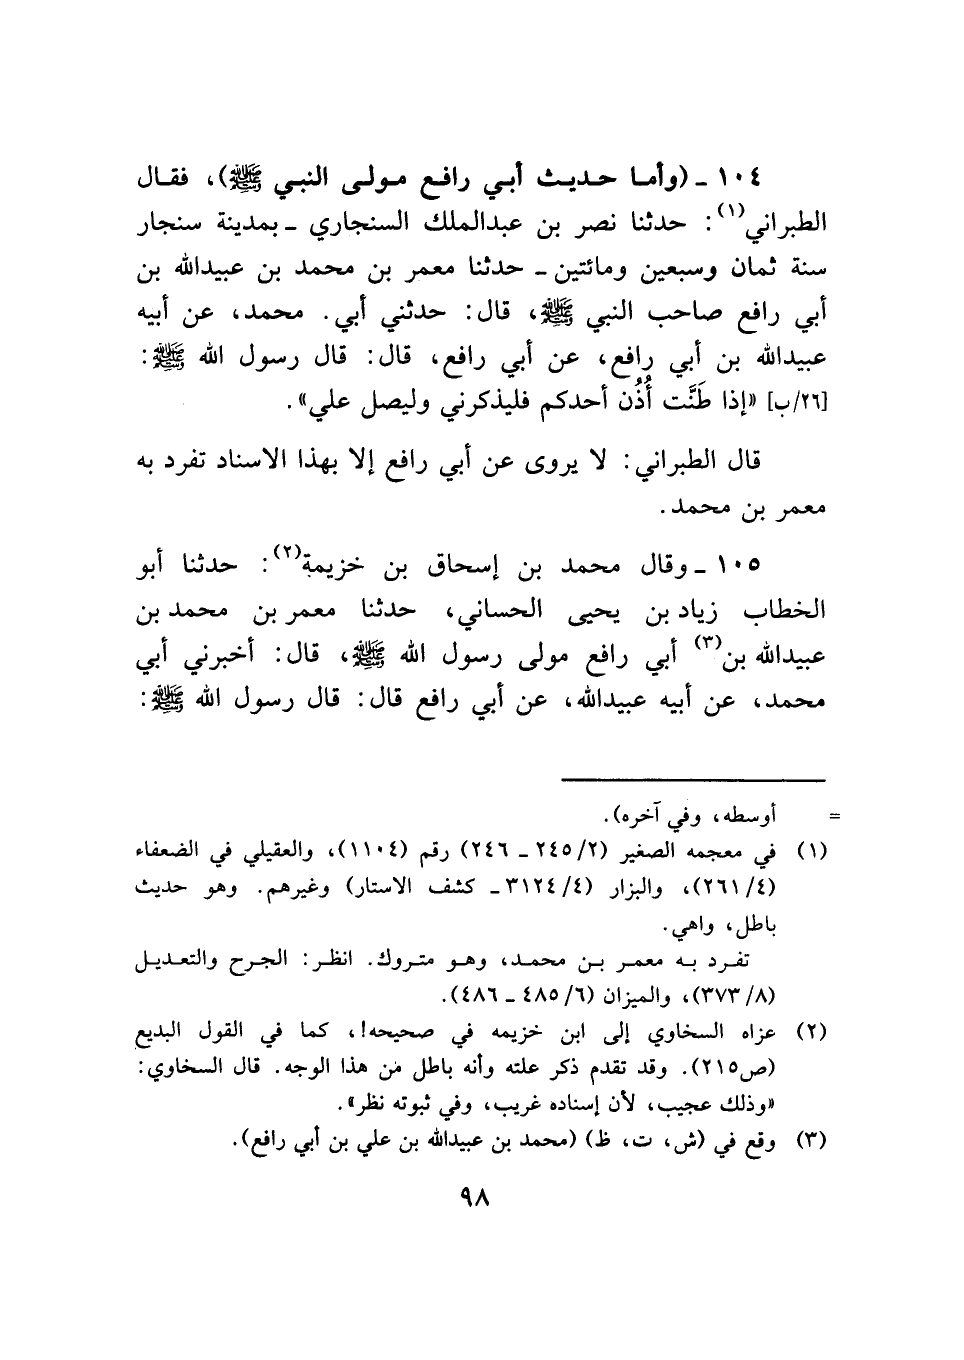 ١٠٤ ـ (وأما حديث أبي رافع مولى النبي ﷺ)، فقال
الطبراني(١): حدثنا نصر بن عبدالملك السنجاري ـ بمدينة سنجار
سنة ثمان وسبعين ومائتين ـ حدثنا معمر بن محمد بن عبيدالله بن
أبي رافع صاحب النبي ﷺ، قال: حدثني أبي. محمد، عن أبيه
عبيدالله بن أبي رافع، عن أبي رافع، قال: قال رسول الله ﷺ:
[٢٦/ب] «إذا طَنَّت أُذُن أحدكم فليذكرني وليصل علي».
قال الطبراني: لا يروى عن أبي رافع إلا بهذا الاسناد تفرد به
معمر بن محمد.
١٠٥ ـ وقال محمد بن إسحاق بن خزيمة(٢): حدثنا أبو
الخطاب زياد بن يحيى الحساني، حدثنا معمر بن محمد بن
عبيدالله بن(٣) أبي رافع مولى رسول الله ﷺ، قال: أخبرني أبي
محمد، عن أبيه عبيدالله، عن أبي رافع قال: قال رسول الله ﷺ:
= أوسطه، وفي آخره).
(١) في معجمه الصغير (٢/ ٢٤٥ ـ ٢٤٦) رقم (١١٠٤)، والعقيلي في الضعفاء
(٤/ ٢٦١)، والبزار (٤/ ٣١٢٤ ـ كشف الاستار) وغيرهم. وهو حديث
باطل، واهي.
تفرد به معمر بن محمد، وهو متروك. انظر: الجرح والتعديل
(٨/ ٣٧٣)، والميزان (٦/ ٤٨٥ ـ ٤٨٦).
(٢) عزاه السخاوي إلى ابن خزيمه في صحيحه!، كما في القول البديع
(ص٢١٥). وقد تقدم ذكر علته وأنه باطل من هذا الوجه. قال السخاوي:
«وذلك عجيب، لأن إسناده غريب، وفي ثبوته نظر».
(٣) وقع في (ش، ت، ظ) (محمد بن عبيدالله بن علي بن أبي رافع).
٩٨